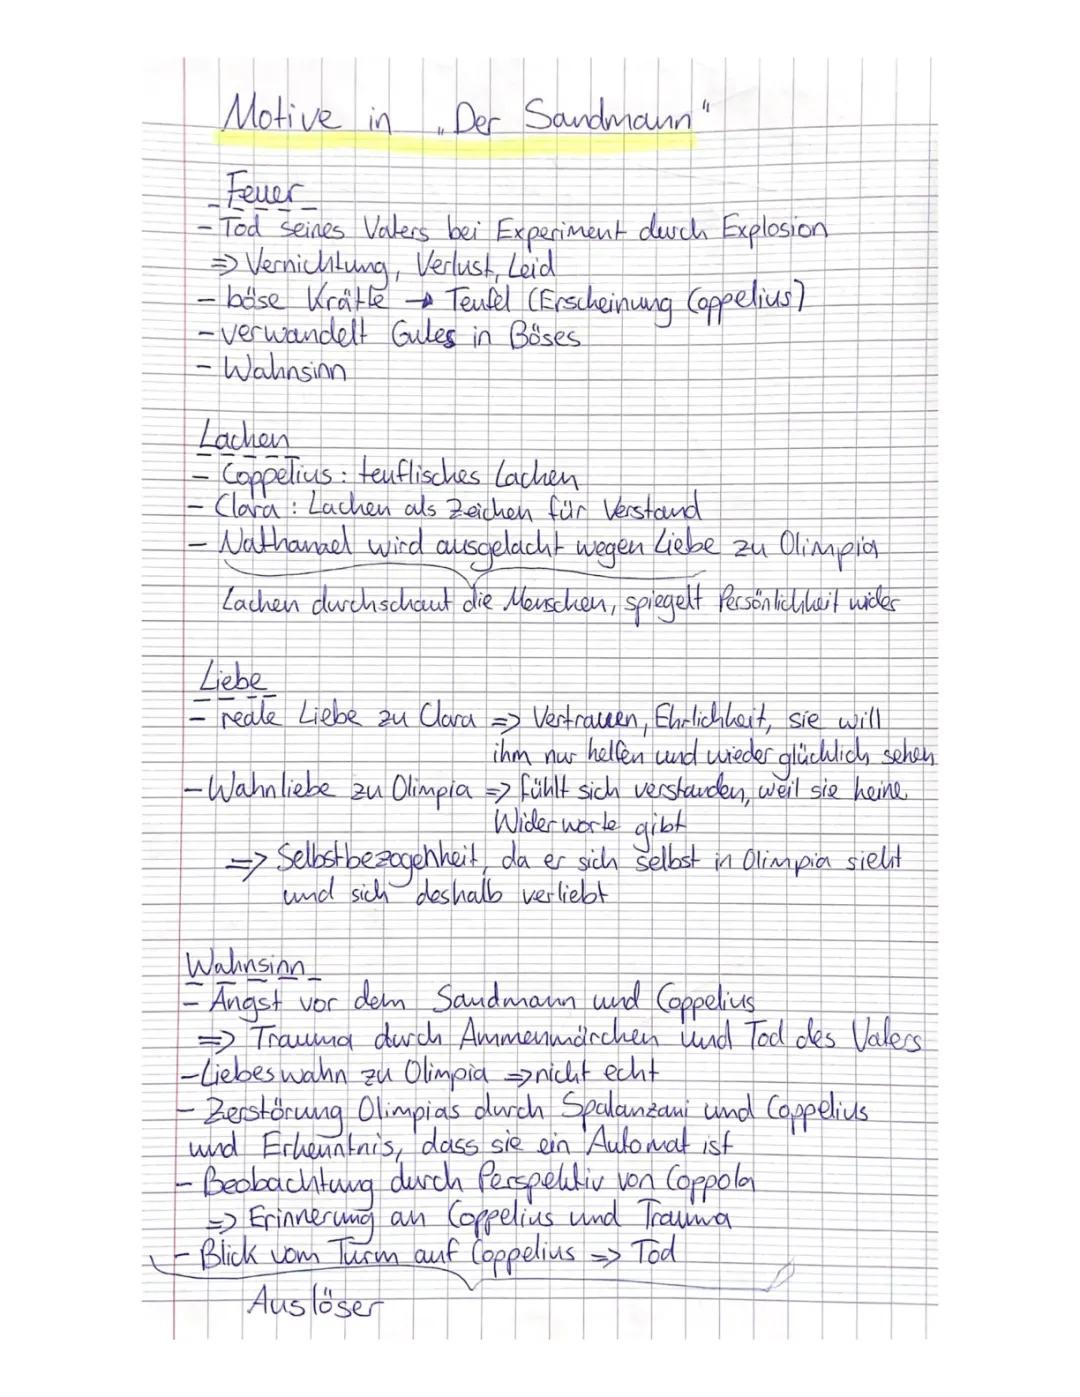 Motive in „Der Sandmann"
Feuer
- Tod seines Vaters bei Experiment durch Explosion
=> Vernichtung, Verlust, Leid
- böse Kräfte → Teufel (Erscheinung Coppelius)
- verwandelt Gutes in Böses
- Wahnsinn
Lachen
- Coppelius: teuflisches Lachen
- Clara: Lachen als Zeichen für Verstand
- Nathanael wird ausgelacht wegen Liebe zu Olimpia
Lachen durchschaut die Menschen, spiegelt Persönlichkeit wider
Liebe
- reale Liebe zu Clara => Vertrauen, Ehrlichkeit, sie will
ihm nur helfen und wieder glücklich sehen
- Wahnliebe zu Olimpia => fühlt sich verstanden, weil sie keine
Widerworte gibt
=> Selbstbezogenheit, da er sich selbst in Olimpia sieht
und sich deshalb verliebt
Wahnsinn
- Angst vor dem Sandmann und Coppelius
=> Trauma durch Ammenmärchen und Tod des Vaters
- Liebeswahn zu Olimpia => nicht echt
- Zerstörung Olimpias durch Spalanzani und Coppelius
und Erkenntnis, dass sie ein Automat ist
- Beobachtung durch Perspektiv von Coppola
=> Erinnerung an Coppelius und Trauma
- Blick vom Turm auf Coppelius => Tod
Auslöser